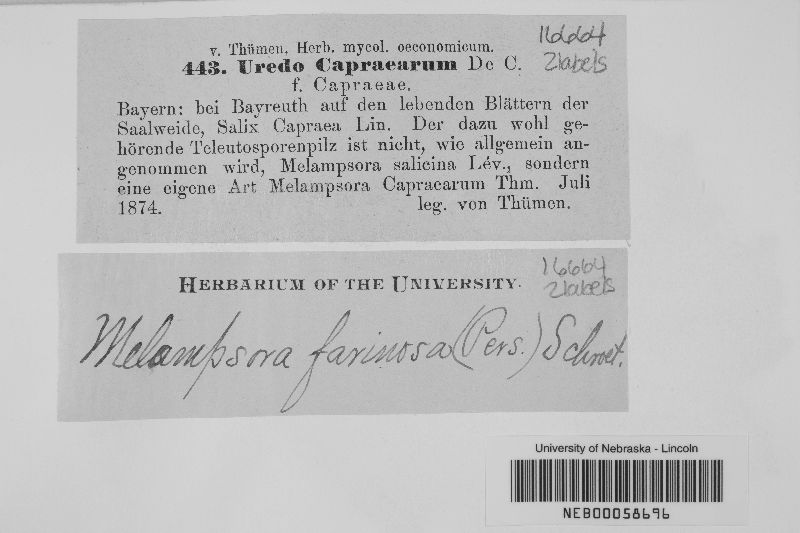 v. Thümen, Herb. mycol. oeconomicum.
16664
2labels
443. Uredo Capraearum De C.
f. Capraeae.
Bayern: bei Bayreuth auf den lebenden Blättern der
Saalweide, Salix Capraea Lin. Der dazu wohl ge-
hörende Teleutosporenpilz ist nicht, wie allgemein an-
genommen wird, Melampsora salicina Lév., sondern
eine eigene Art Melampsora Capraearum Thm. Juli
1874. leg. von Thümen.
HERBARIUM OF THE UNIVERSITY.
16664
2labels
Melampsora farinosa (Pers.) Schroet.
University of Nebraska - Lincoln
NEB00058696